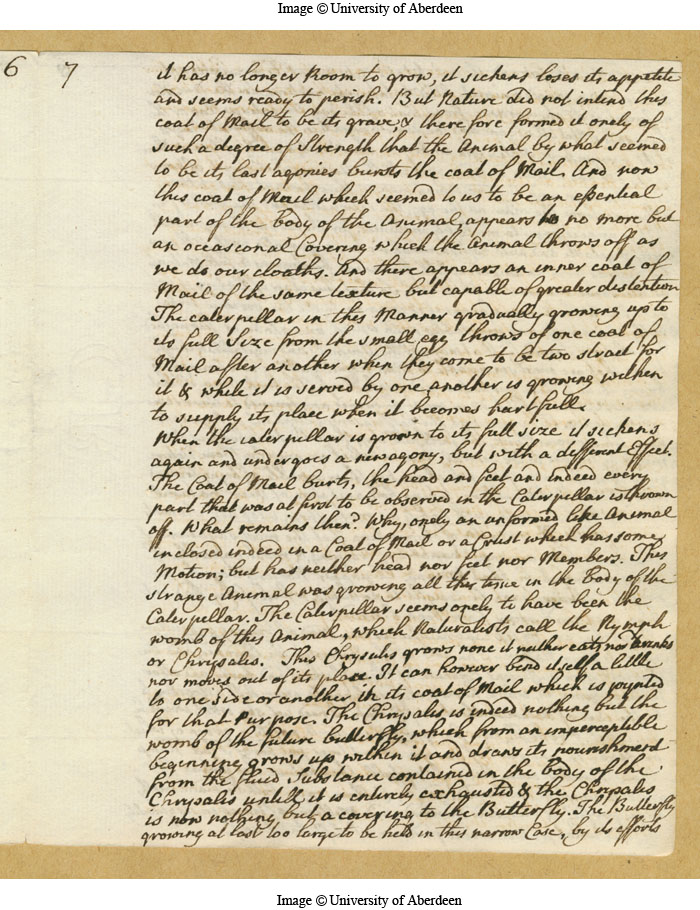 Image © University of Aberdeen
6 7
it has no longer Room to grow, it sickens loses its appetite
and seems ready to perish. But Nature did not intend this
coat of Mail to be its grave, & there fore formed it onely of
such a degree of Strength that the Animal by what seemed
to be its last agonies bursts the coat of Mail. And now
this coat of Mail which seemed to us to be an essential
part of the body of the Animal, appears to no more but
an occasional Covering which the Animal throws off as
we do our cloaths. And there appears an inner coat of
Mail of the same texture but capable of greater distention
The caterpillar in this Manner gradually growing up to
its full Size from the small egg throws of one coat of
Mail after another when they come to be two strait for
it & while it is served by one another is growing within
to supply its place when it becomes hurtfull.
When the caterpillar is grown to its full size it sickens
again and undergoes a new agony, but with a different Effect.
The Coat of Mail bursts, the head and feet and indeed every
part that was at first to be observed in the Caterpillar is thrown
off. What remains then? Why, onely an unformed like Animal
inclosed indeed in a Coat of Mail or a Crust which has some
Motion; but has neither head nor feet nor Members. This
strange Animal was growing all this time in the body of the
Caterpillar. The Caterpillar seems onely to have been the
womb of this Animal, which Naturalists call the Nymph
or Chrysalis. This Chrysalis grows none it neither eats nor drinks
nor moves out of its place. It can however bend itself a little
to one side or another in its coat of Mail which is joynted
for that Purpose. The Chrysalis is indeed nothing but the
womb of the future butterfly, which from an imperceptible
beginning grows up within it and draws its nourishment
from the fluid Substance contained in the body of the
Chrysalis untill it is entirely exhausted & the Chrysalis
is now nothing but a covering to the Butterfly. The Butterfly
growing at last too large to be held in this narrow Case, by its efforts
Image © University of Aberdeen